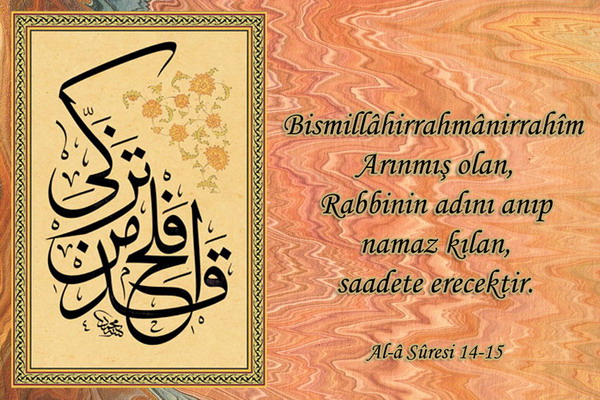 قد أفلح من تزكى
Bismillâhirrahmânirrahîm
Arınmış olan,
Rabbinin adını anıp
namaz kılan,
saadete erecektir.
Al-â Sûresi 14-15